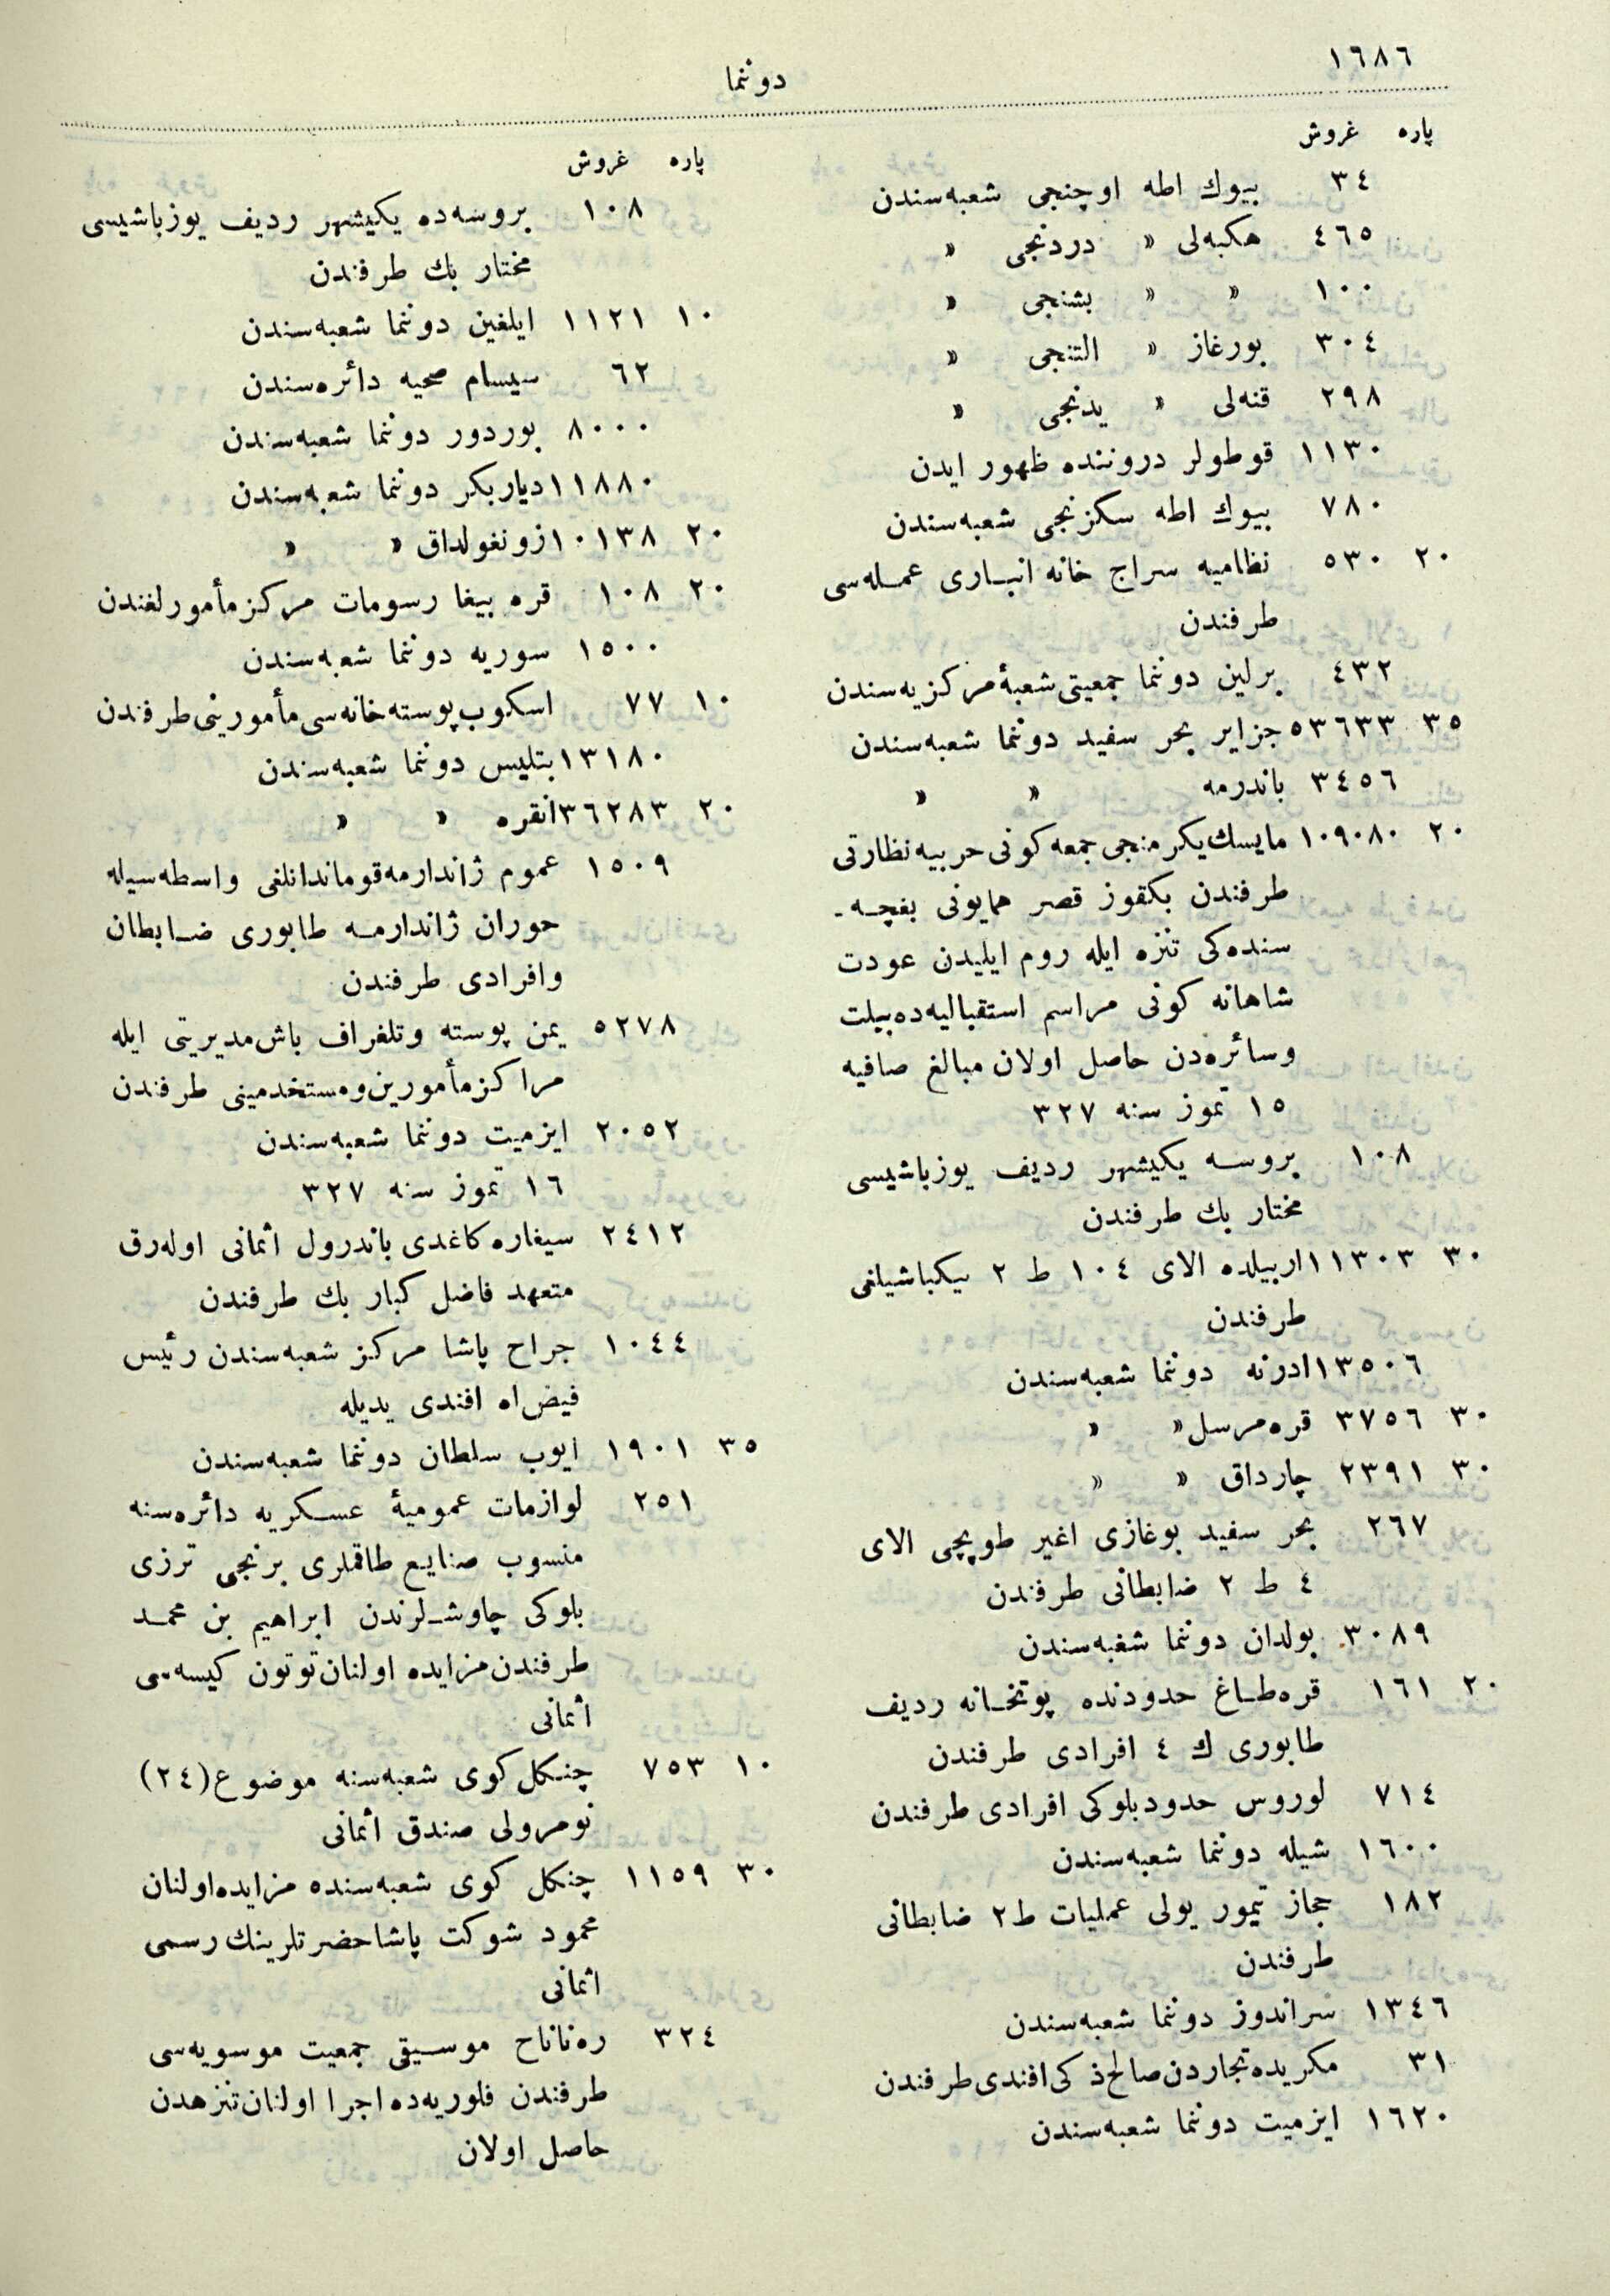 ١٦٨٦
دوننما
پاره غروش
٣٤ بيوك اطه اوچنجى شعبه‌سندن
٤٦٥ هكبه‌لى « دردنجى «
١٠٠ « « بشنجى «
٣٠٤ بورغاز « التنجى «
٢٩٨ قنه‌لى « يدنجى «
١١٣٠ قوطولر دروننده ظهور ايدن
٧٨٠ بيوك اطه سكزنجى شعبه‌سندن
٢٠ ٥٣٠ نظاميه سراج خانه انبارى عمله‌سى
طرفندن
٤٣٢ برلين دوننما جمعيتى شعبۀ مركزيه‌سندن
٣٥ ٥٣٦٣٣ جزاير بحر سفيد دوننما شعبه‌سندن
٣٤٥٦ باندرمه « «
٢٠ ١٠٩٠٨٠ مايسك يكرمنجى جمعه كونى حربيه نظارتى
طرفندن بكقوز قصر همايونى بغچه-
سنده‌كى تنزه ايله روم ايليدن عودت
شاهانه كونى مراسم استقباليه‌ده بيلت
وسائره‌دن حاصل اولان مبالغ صافيه
١٥ تموز سنه ٣٢٧
١٠٨ بروسه يكيشهر رديف يوزباشيسى
مختار بك طرفندن
٣٠ ١١٣٠٣ اربيلده الاى ١٠٤ ط ٢ بيكباشيلغى
طرفندن
١٣٥٠٦ ادرنه دوننما شعبه‌سندن
٣٠ ٣٧٥٦ قره‌مرسل « «
٣٠ ٢٣٩١ چارداق « «
٢٦٧ بحر سفيد بوغازى اغير طوپچى الاى
٤ ط ٢ ضابطانى طرفندن
٣٠٨٩ بولدان دوننما شعبه‌سندن
٢٠ ١٦١ قره‌طاغ حدودنده پوتخانه رديف
طابورى ك ٤ افرادى طرفندن
٧١٤ لوروس حدود بلوكى افرادى طرفندن
١٦٠٠ شيله دوننما شعبه‌سندن
١٨٢ حجاز تيمور يولى عمليات ط ٢ ضابطانى
طرفندن
١٣٤٦ سراندوز دوننما شعبه‌سندن
٣١ مكريده تجاردن صالح ذكى افندى طرفندن
١٦٢٠ ايزميت دوننما شعبه‌سندن
پاره غروش
١٠٨ بروسه‌ده يكيشهر رديف يوزباشيسى
مختار بك طرفندن
١٠ ١١٢١ ايلغين دوننما شعبه‌سندن
٦٢ سيسام صحيه دائره‌سندن
٨٠٠٠ بوردور دوننما شعبه‌سندن
١١٨٨٠ دياربكر دوننما شعبه‌سندن
٢٠ ١٠١٣٨ زونغولداق « «
٢٠ ١٠٨ قره بيغا رسومات مركز مأمورلغندن
١٥٠٠ سوريه دوننما شعبه‌سندن
١٠ ٧٧ اسكوب پوسته خانه‌سى مأمورينى طرفندن
١٣١٨٠ بتليس دوننما شعبه‌سندن
٢٠ ٣٦٢٨٣ انقره « «
١٥٠٩ عموم ژاندارمه قوماندانلغى واسطه‌سيله
حوران ژاندارمه طابورى ضابطان
وافرادى طرفندن
٥٢٧٨ يمن پوسته وتلغراف باش‌مديريتى ايله
مراكز مأمورين ومستخدمينى طرفندن
٢٠٥٢ ايزميت دوننما شعبه‌سندن
١٦ تموز سنه ٣٢٧
٢٤١٢ سيغاره كاغدى باندرول اثمانى اوله‌رق
متعهد فاضل كبار بك طرفندن
١٠٤٤ جراح پاشا مركز شعبه‌سندن رئيس
فيض‌الله افندى يديله
٣٥ ١٩٠١ ايوب سلطان دوننما شعبه‌سندن
٢٥١ لوازمات عموميۀ عسكريه دائره‌سنه
منسوب صنايع طاقملرى برنجى ترزى
بلوكى چاوشلرندن ابراهيم بن محمد
طرفندن مزايده اولنان توتون كيسه‌سى
اثمانى
١٠ ٧٥٣ چنكل كوى شعبه‌سنه موضوع (٢٤)
نومرولى صندق اثمانى
٣٠ ١١٥٩ چنكل كوى شعبه‌سنده مزايده اولنان
محمود شوكت پاشا حضرتلرينك رسمى
اثمانى
٣٢٤ ره‌ناناح موسيقى جمعيت موسويه‌سى
طرفندن فلوريه‌ده اجرا اولنان تنزهدن
حاصل اولان